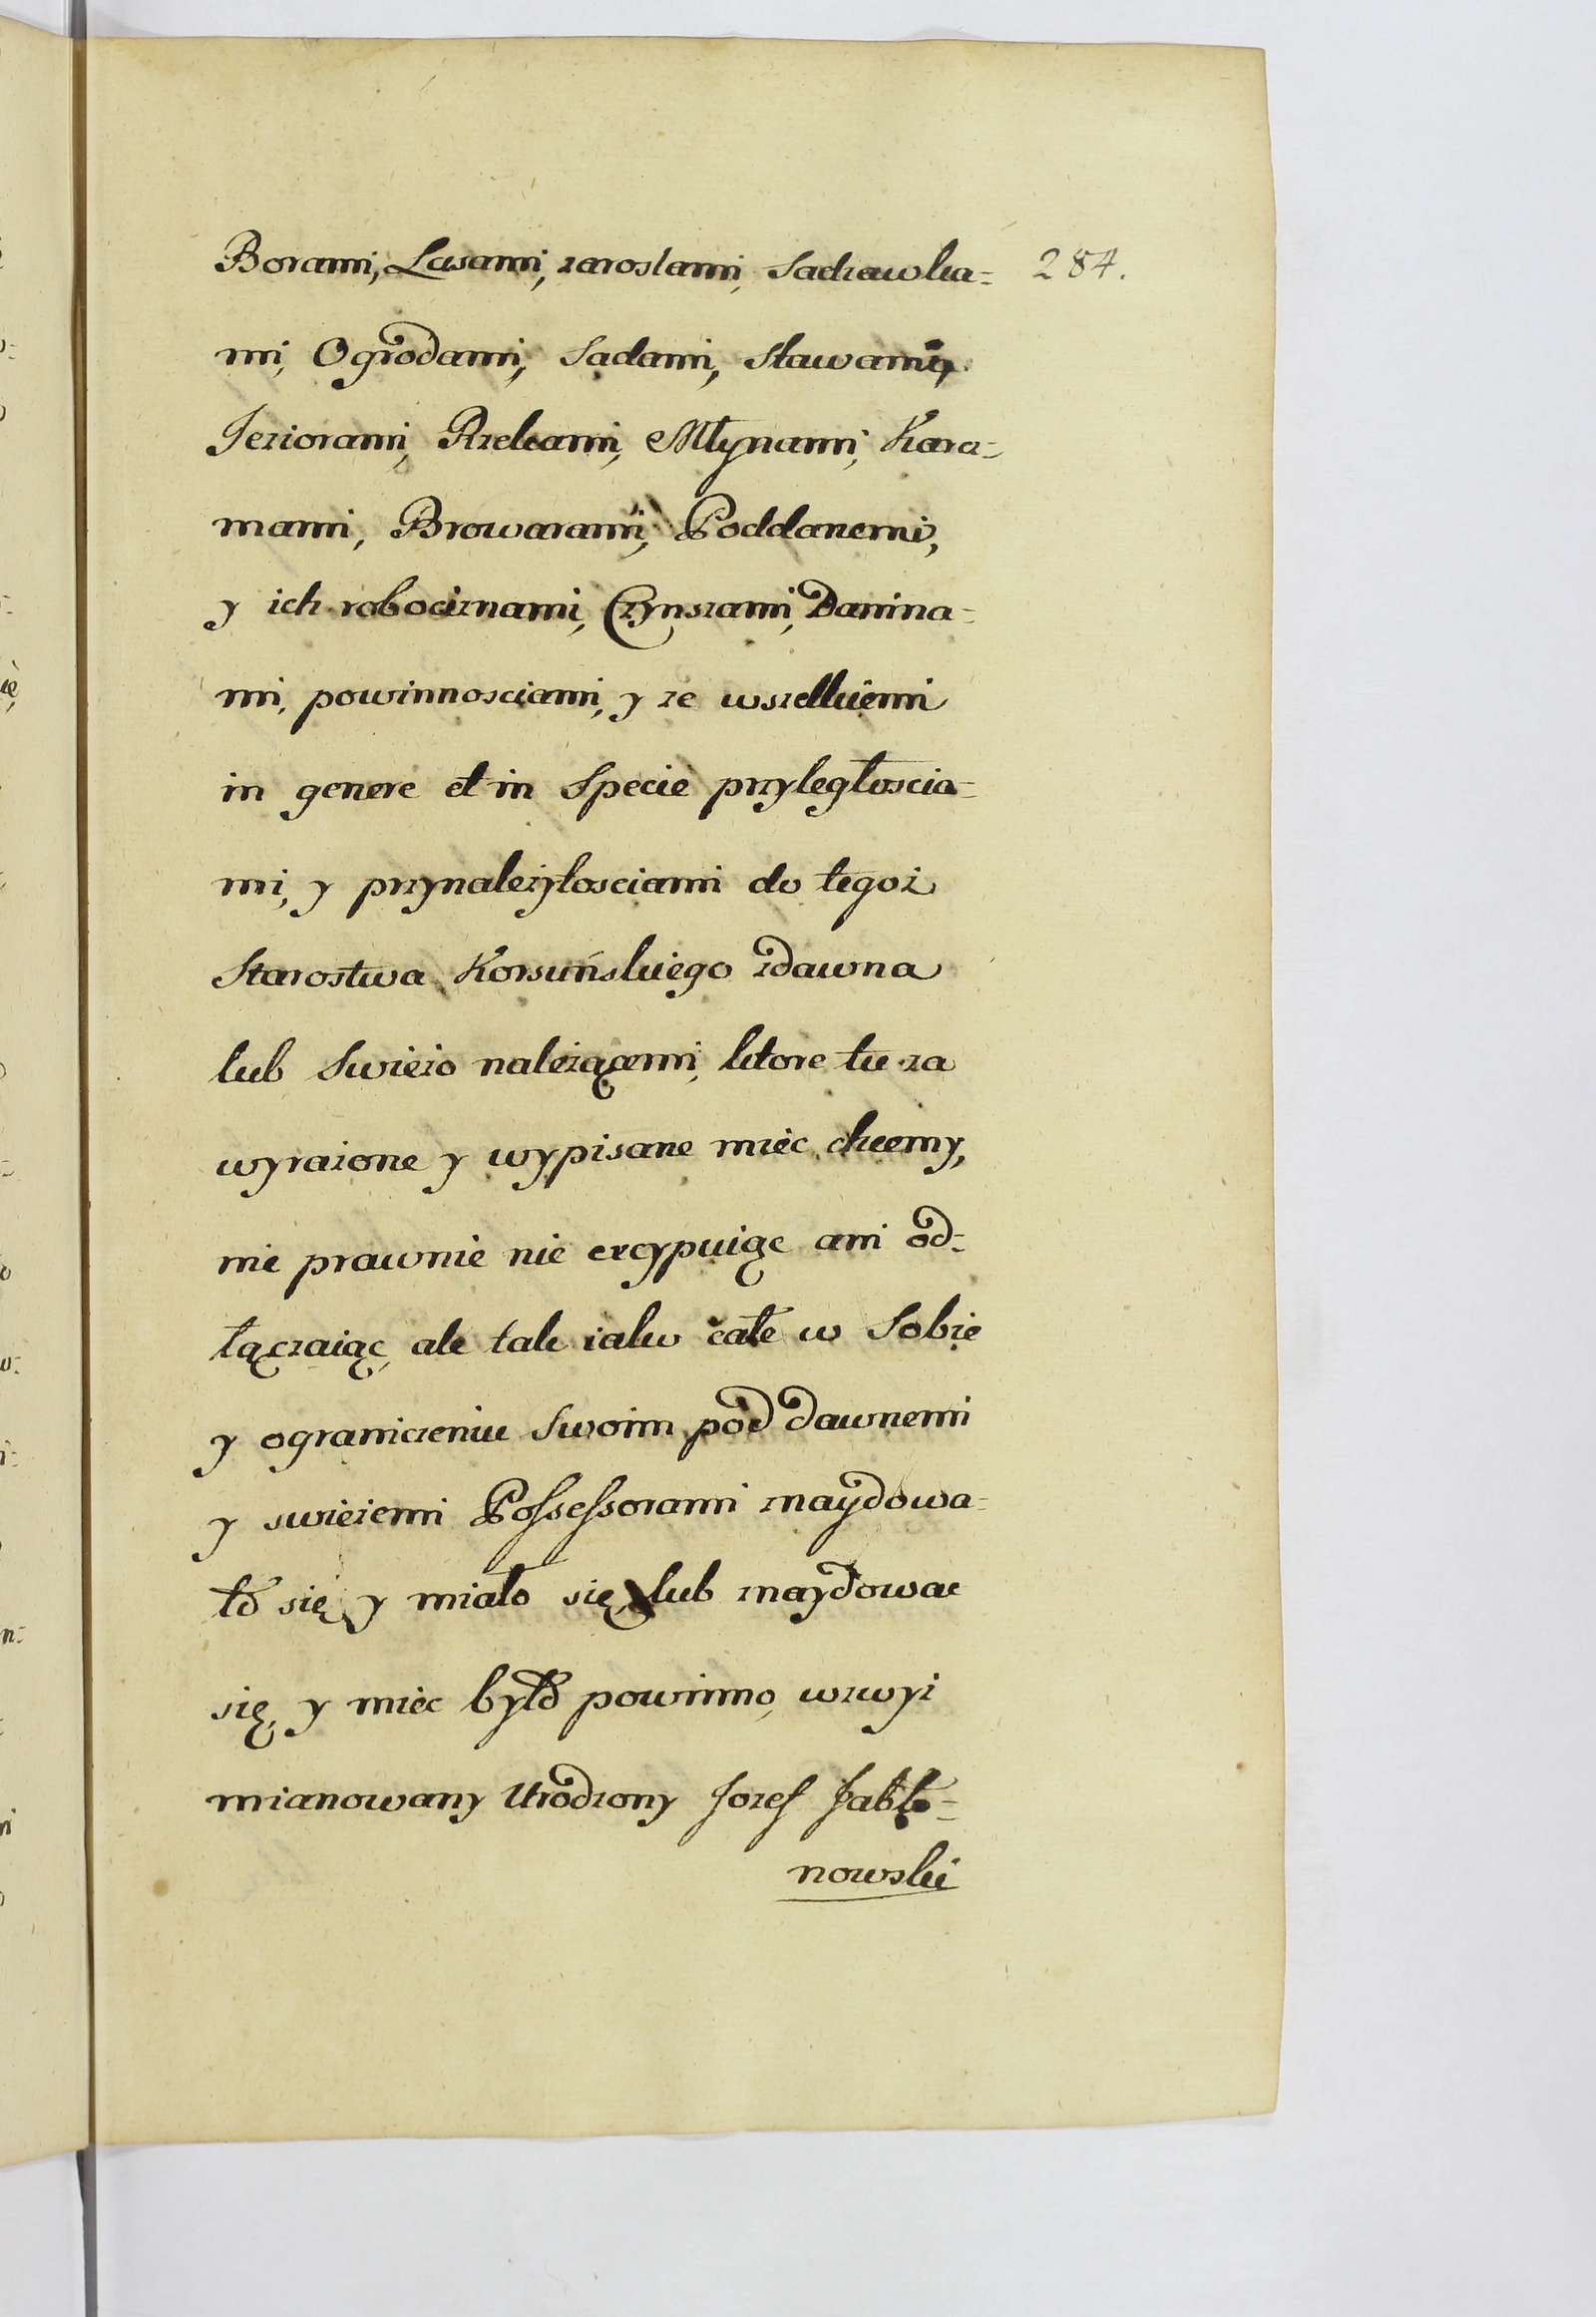 Borami, Lasami, zaroslami, Sadzawka=
287.
mi, Ogrodami, Sadami, Stawami,
Jeziorami, Rzekami, Młynami, Karcz=
mami, Browarami, Poddanemi,
y ich robociznami, Czynszami, Danina=
mi, powinnosciami, y ze wszelkiemi
in genere et in Specie przyległoscia=
mi, y przynależytosciami do tegoż
Starostwa Korsuńskiego zdawna
lub Swiezo należącemi, ktore tu za
wyrażone y wypisane miec chcemy,
nic prawnie nie excypuiąc ani od=
łączaiąc, ale tak iako całe w Sobie
y ograniczeniu Swoim pod dawnemi
y swieżemi Possessorami znaydowa=
ło się, y miało się, lub znaydowac
się, y miec było powinno, wzwyż
mianowany Urodzony Jozef Jabło=
nowski